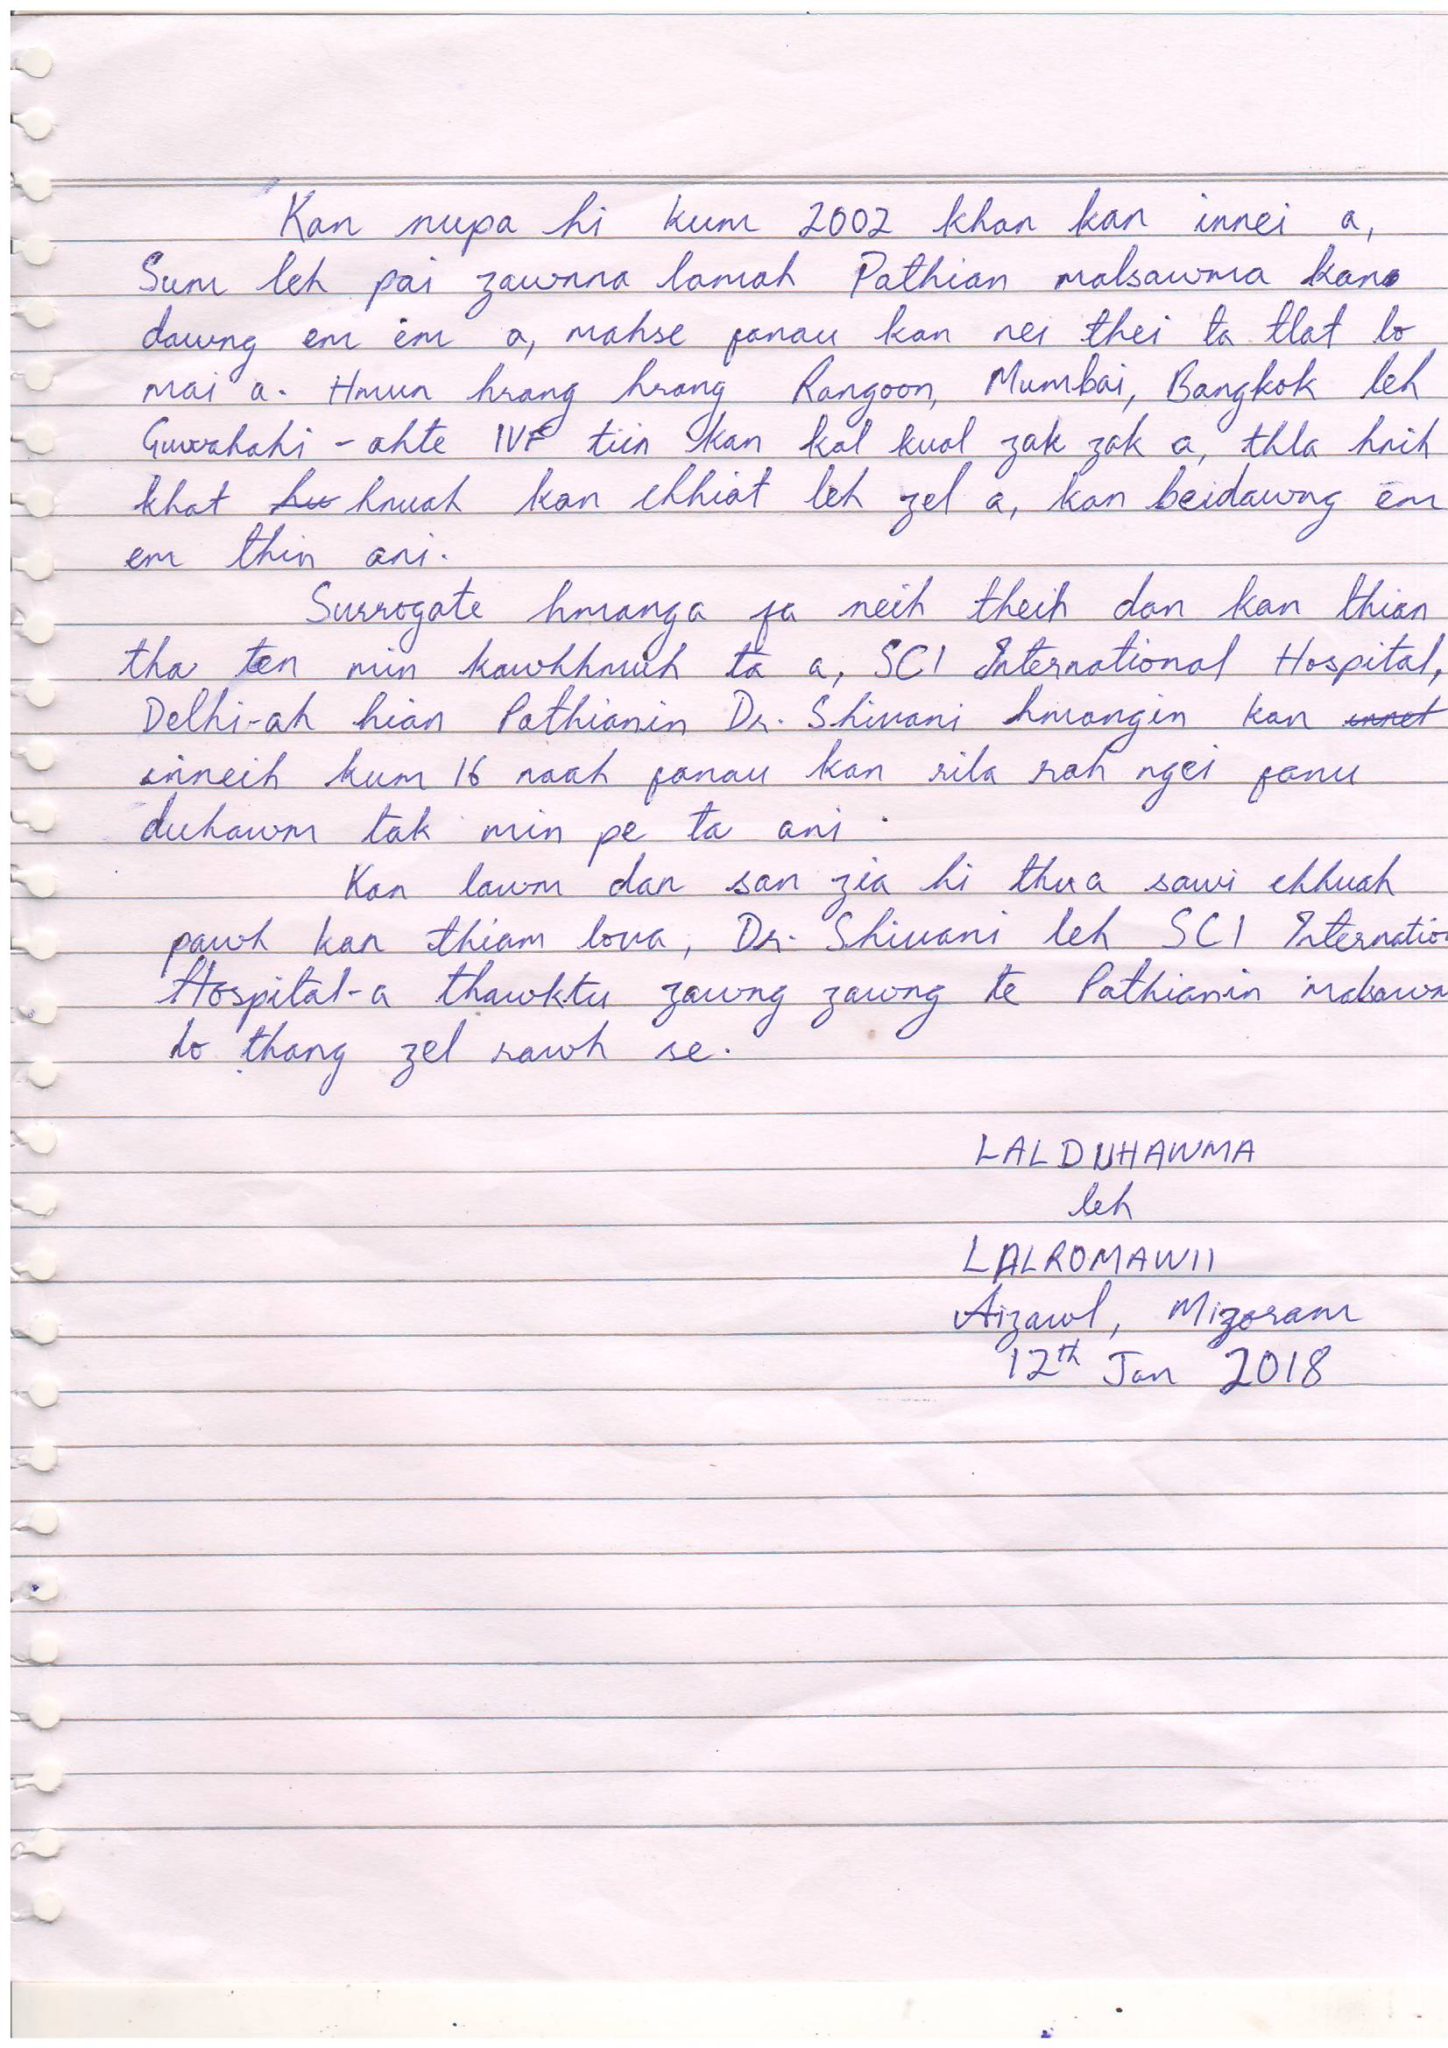 Kan nupa hi kum 2002 khan kan innei a,
Sum leh pai zawnna lamah Pathian malsawma kan
dawng em em a, mahse fanau kan nei thei ta tlat lo
mai a. Hmun hrang hrang Rangoon, Mumbai, Bangkok leh
Guwahahi - ahte IVF tiin kan kal kual zak zak a, thla hnih
khat hnuah kan chhiat leh zel a, kan beidawng em
em thin ani.
Surrogate hmanga fa neih theih dan kan thian
tha ten min kawhhmuh ta a, SCI International Hospital,
Delhi-ah hian Pathianin Dr. Shivani hmangin kan
inneih kum 16 naah fanau kan rila rah ngei fanu
duhawm tak min pe ta ani.
Kan lawm dan san zia hi thu a sawi chhuah
pawh kan thiam lova, Dr. Shivani leh SCI Internatio
Hospital-a thawktu zawng zawng te Pathianin malsawm
lo thang zel rawh se.
LALDUHAWMA
leh
LALROMAWII
Aizawl, Mizoram
12th Jan 2018